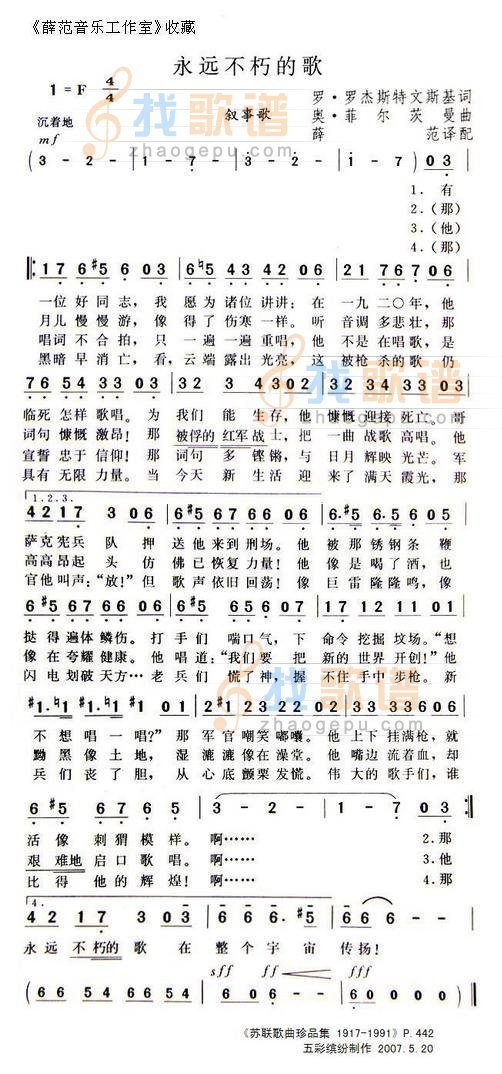 《薛范音乐工作室》收藏
永远不朽的歌
1=F 4/4
叙事歌
罗·罗杰斯特文斯基词
奥·菲尔茨曼曲
薛 范译配
沉着地
mf
找歌谱
zhaogepu.com
( 3 - 2 - | 1 - 7 - | 3 - 2 - | 1 - 7 ) 0 3 |
1. 有
2.(那)
3.(他)
4.(那)
1 7 6 #5 6 0 3 | 6 #5 4 3 4 2 0 6 | 2 1 7 6 7 0 6 |
一位好同志，我愿为诸位讲讲：在一九二〇年，他
月儿慢慢游，像得了伤寒一样。听音调多悲壮，那
唱词不合拍，只一遍一遍重唱；他不是在唱歌，是
黑暗早消亡，看，云端露出光亮，这被枪杀的歌仍
7 6 5 4 3 3 0 3 | 3 2 3 4 3 0 2 | 3 2 4 3 3 0 3 |
临死怎样歌唱。为我们能生存，他慷慨迎接死亡。哥
词句慷慨激昂！那被俘的红军战士，把一曲战歌高唱。他
宣誓忠于信仰！那词句多铿锵，与日月辉映光芒。军
具有无限力量。当今天新生活迎来了满天霞光，那
1.2.3.
4 2 1 7 3 0 6 | 6 #5 6 7 6 0 6 | 6. #5 6. #5 6 |
萨克宪兵队押送他来到刑场。他被那锈钢条鞭
高高昂起头仿佛已恢复力量！他像是喝了酒，也
官他叫声：“放！”但歌声依旧回荡！像巨雷隆隆鸣，像
挞得遍体鳞伤。打手们喘口气，下命令挖掘坟场。“想
像在夸耀健康。他唱道：“我们要把新的世界开创！”他
闪电划破天方…老兵们慌了神，握不住手中步枪。新
不想唱一唱？”那军官嘲笑嘟囔。他上下挂满枪，就
黝黑像土地，湿漉漉像在澡堂。他嘴边流着血，却
兵们丧了胆，从心底颤栗发慌。伟大的歌手们，谁
6 #5 6 7 6 6 | 3 - 2 - | 1 - 7 0 3 :
活像刺猬模样。啊…… 2.那
艰难地启口歌唱。啊…… 3.他
比得他的辉煌！啊…… 4.那
4.
永远不朽的歌在整个宇宙传扬！
sff ff fff
《苏联歌曲珍品集 1917-1991》P.442
五彩缤纷制作 2007.5.20